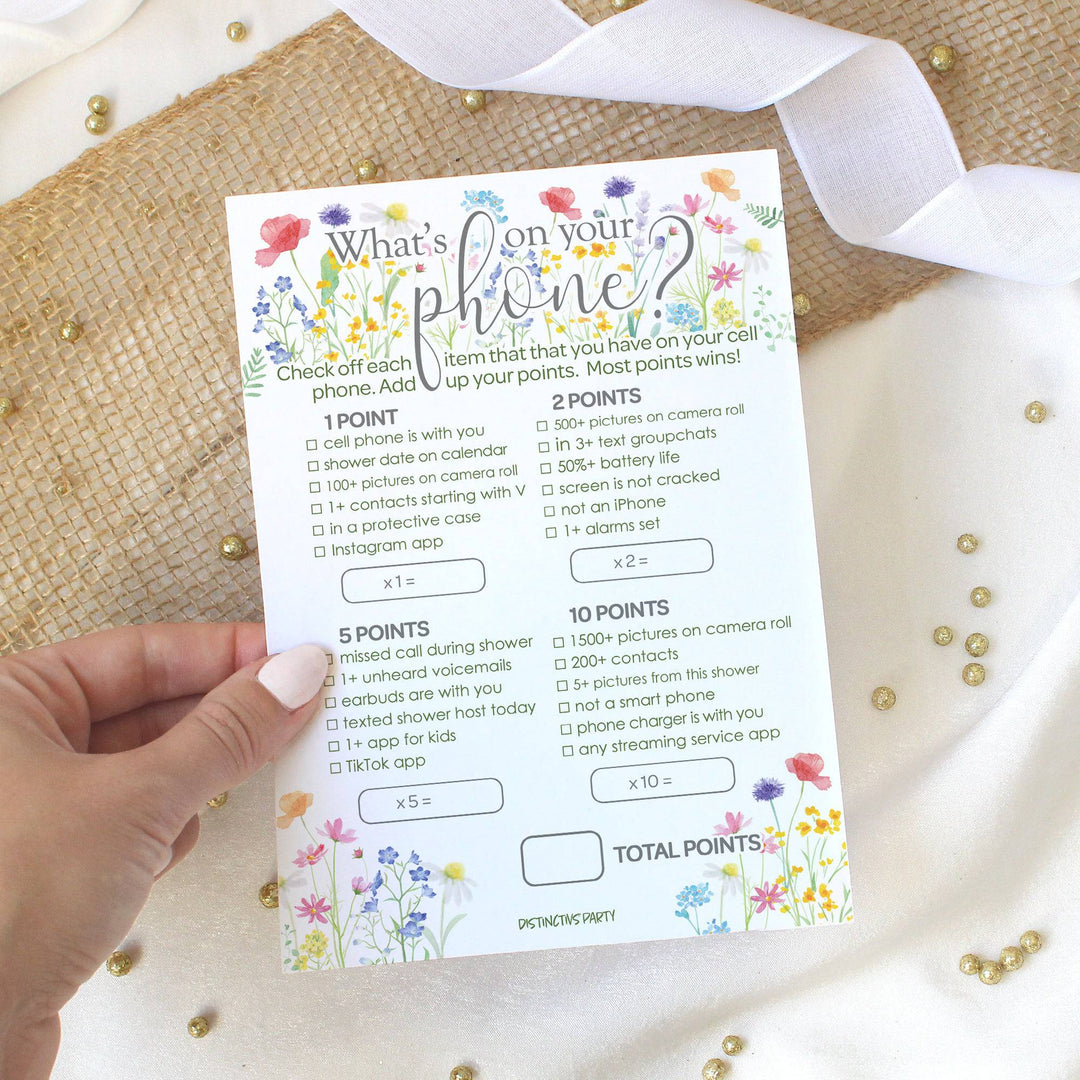 What's on your
phone?
Check off each item that that you have on your cell
phone. Add up your points. Most points wins!
1 POINT
cell phone is with you
shower date on calendar
100+ pictures on camera roll
1+ contacts starting with V
in a protective case
Instagram app
x 1 =
2 POINTS
500+ pictures on camera roll
in 3+ text groupchats
50%+ battery life
screen is not cracked
not an iPhone
1+ alarms set
x 2 =
5 POINTS
missed call during shower
1+ unheard voicemails
earbuds are with you
texted shower host today
1+ app for kids
TikTok app
x 5 =
10 POINTS
1500+ pictures on camera roll
200+ contacts
5+ pictures from this shower
not a smart phone
phone charger is with you
any streaming service app
x 10 =
TOTAL POINTS
DISTINCTIVS PARTY